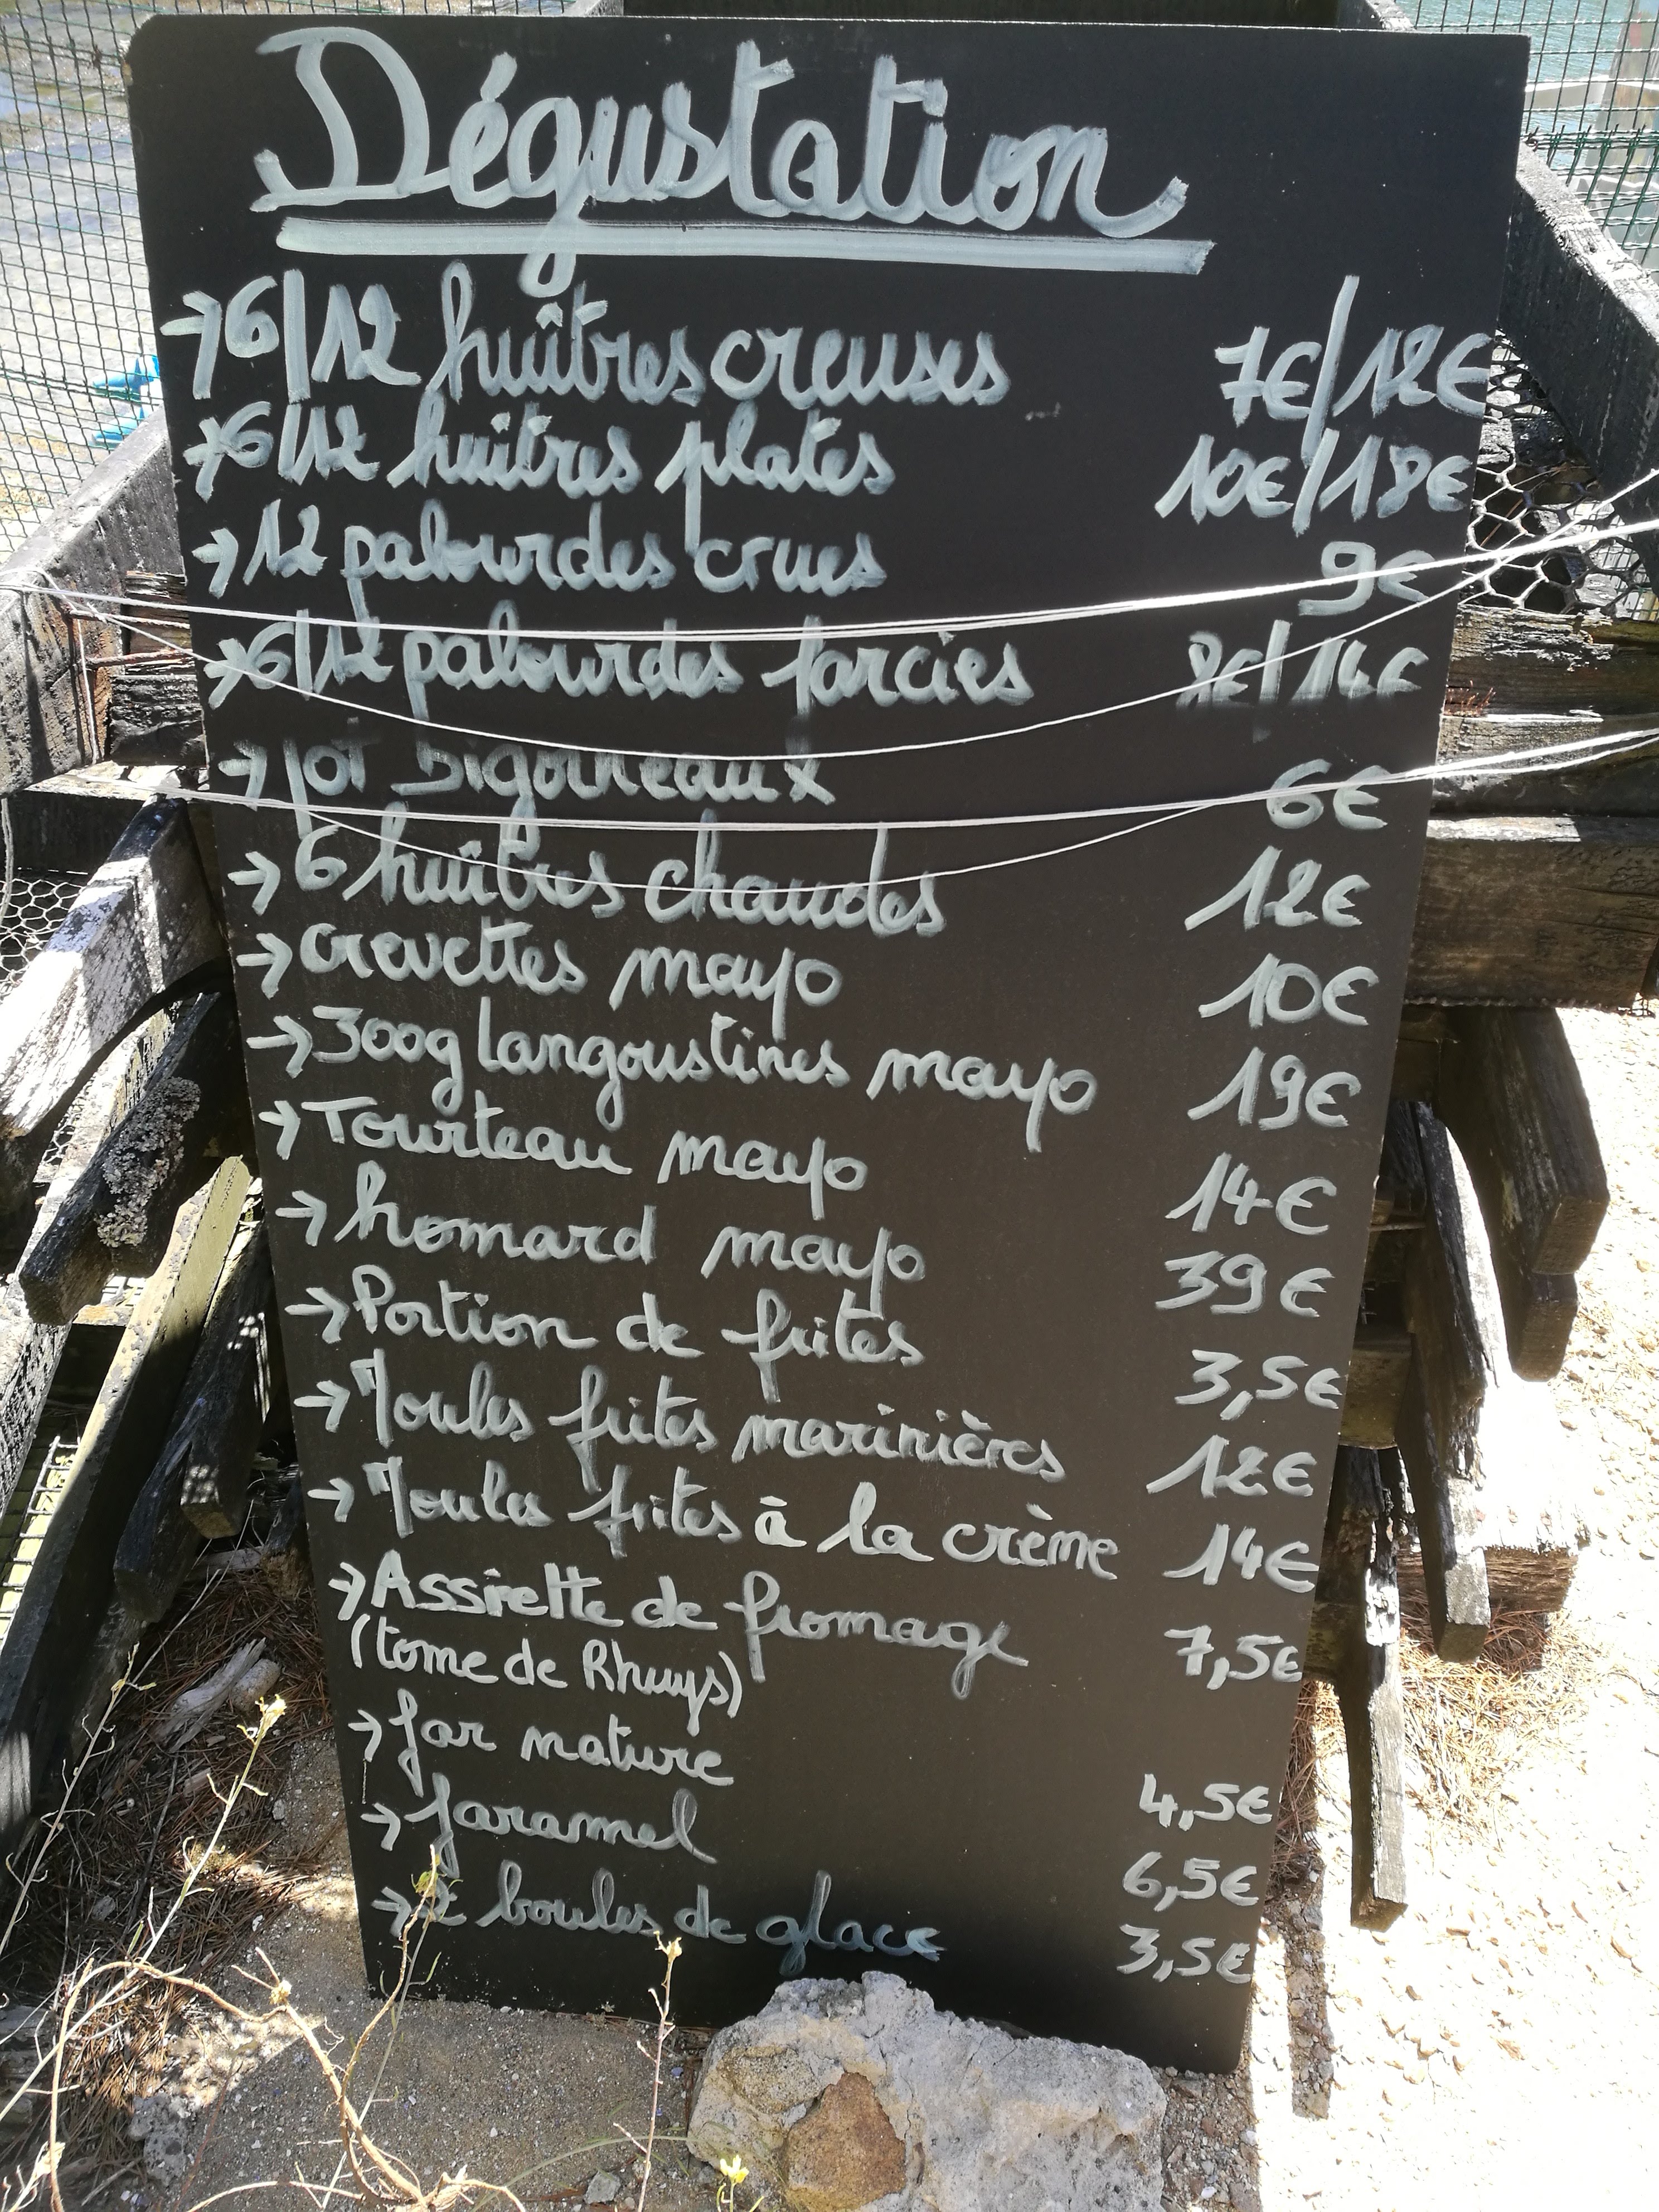 Dégustation
→ 6/12 huîtres creuses 7€/12€
→ 6/12 huîtres plates 10€/18€
→ 12 palourdes crues 9€
→ 6/12 palourdes farcies 8€/14€
→ pot bigorneaux 6€
→ 6 huîtres chaudes 12€
→ crevettes mayo 10€
→ 300g langoustines mayo 19€
→ Tourteau mayo 14€
→ homard mayo 39€
→ Portion de frites 3,5€
→ Moules frites marinières 12€
→ Moules frites à la crème 14€
→ Assiette de fromage 7,5€
(tome de Rhuys)
→ far nature 4,5€
→ faramel 6,5€
→ 2 boules de glace 3,5€